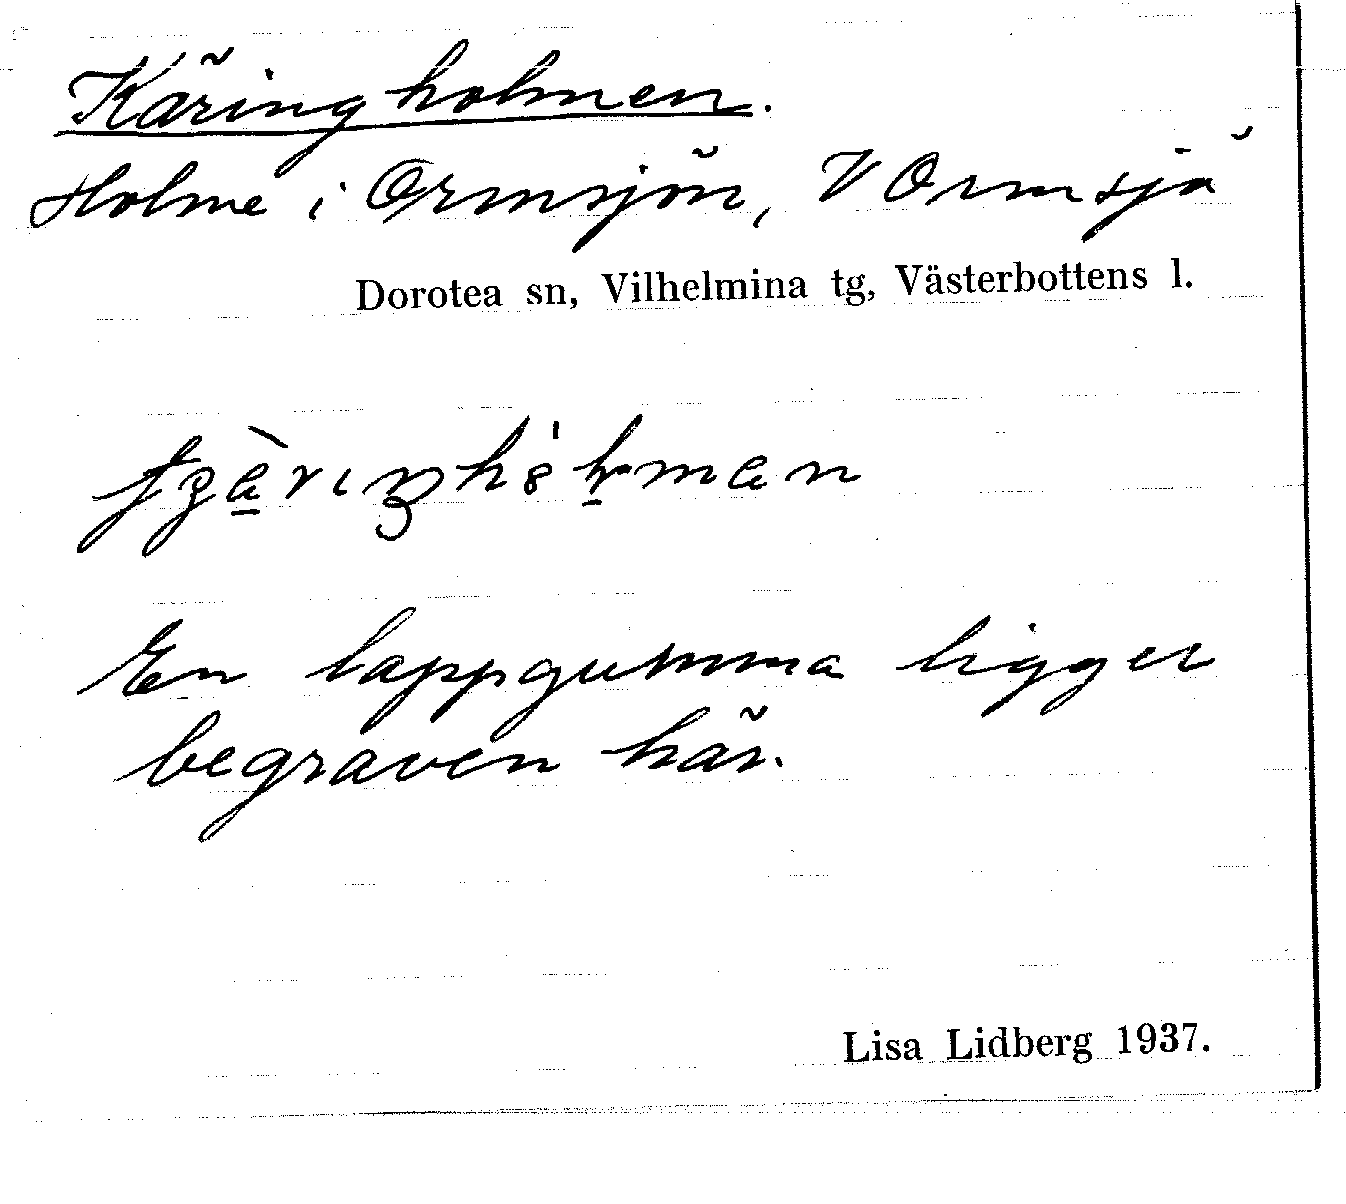 Käringholmen.
Holme i Ormsjön, V Ormsjö
Dorotea sn, Vilhelmina tg, Västerbottens l.
En lappgumma ligger
begraven här.
Lisa Lidberg 1937.